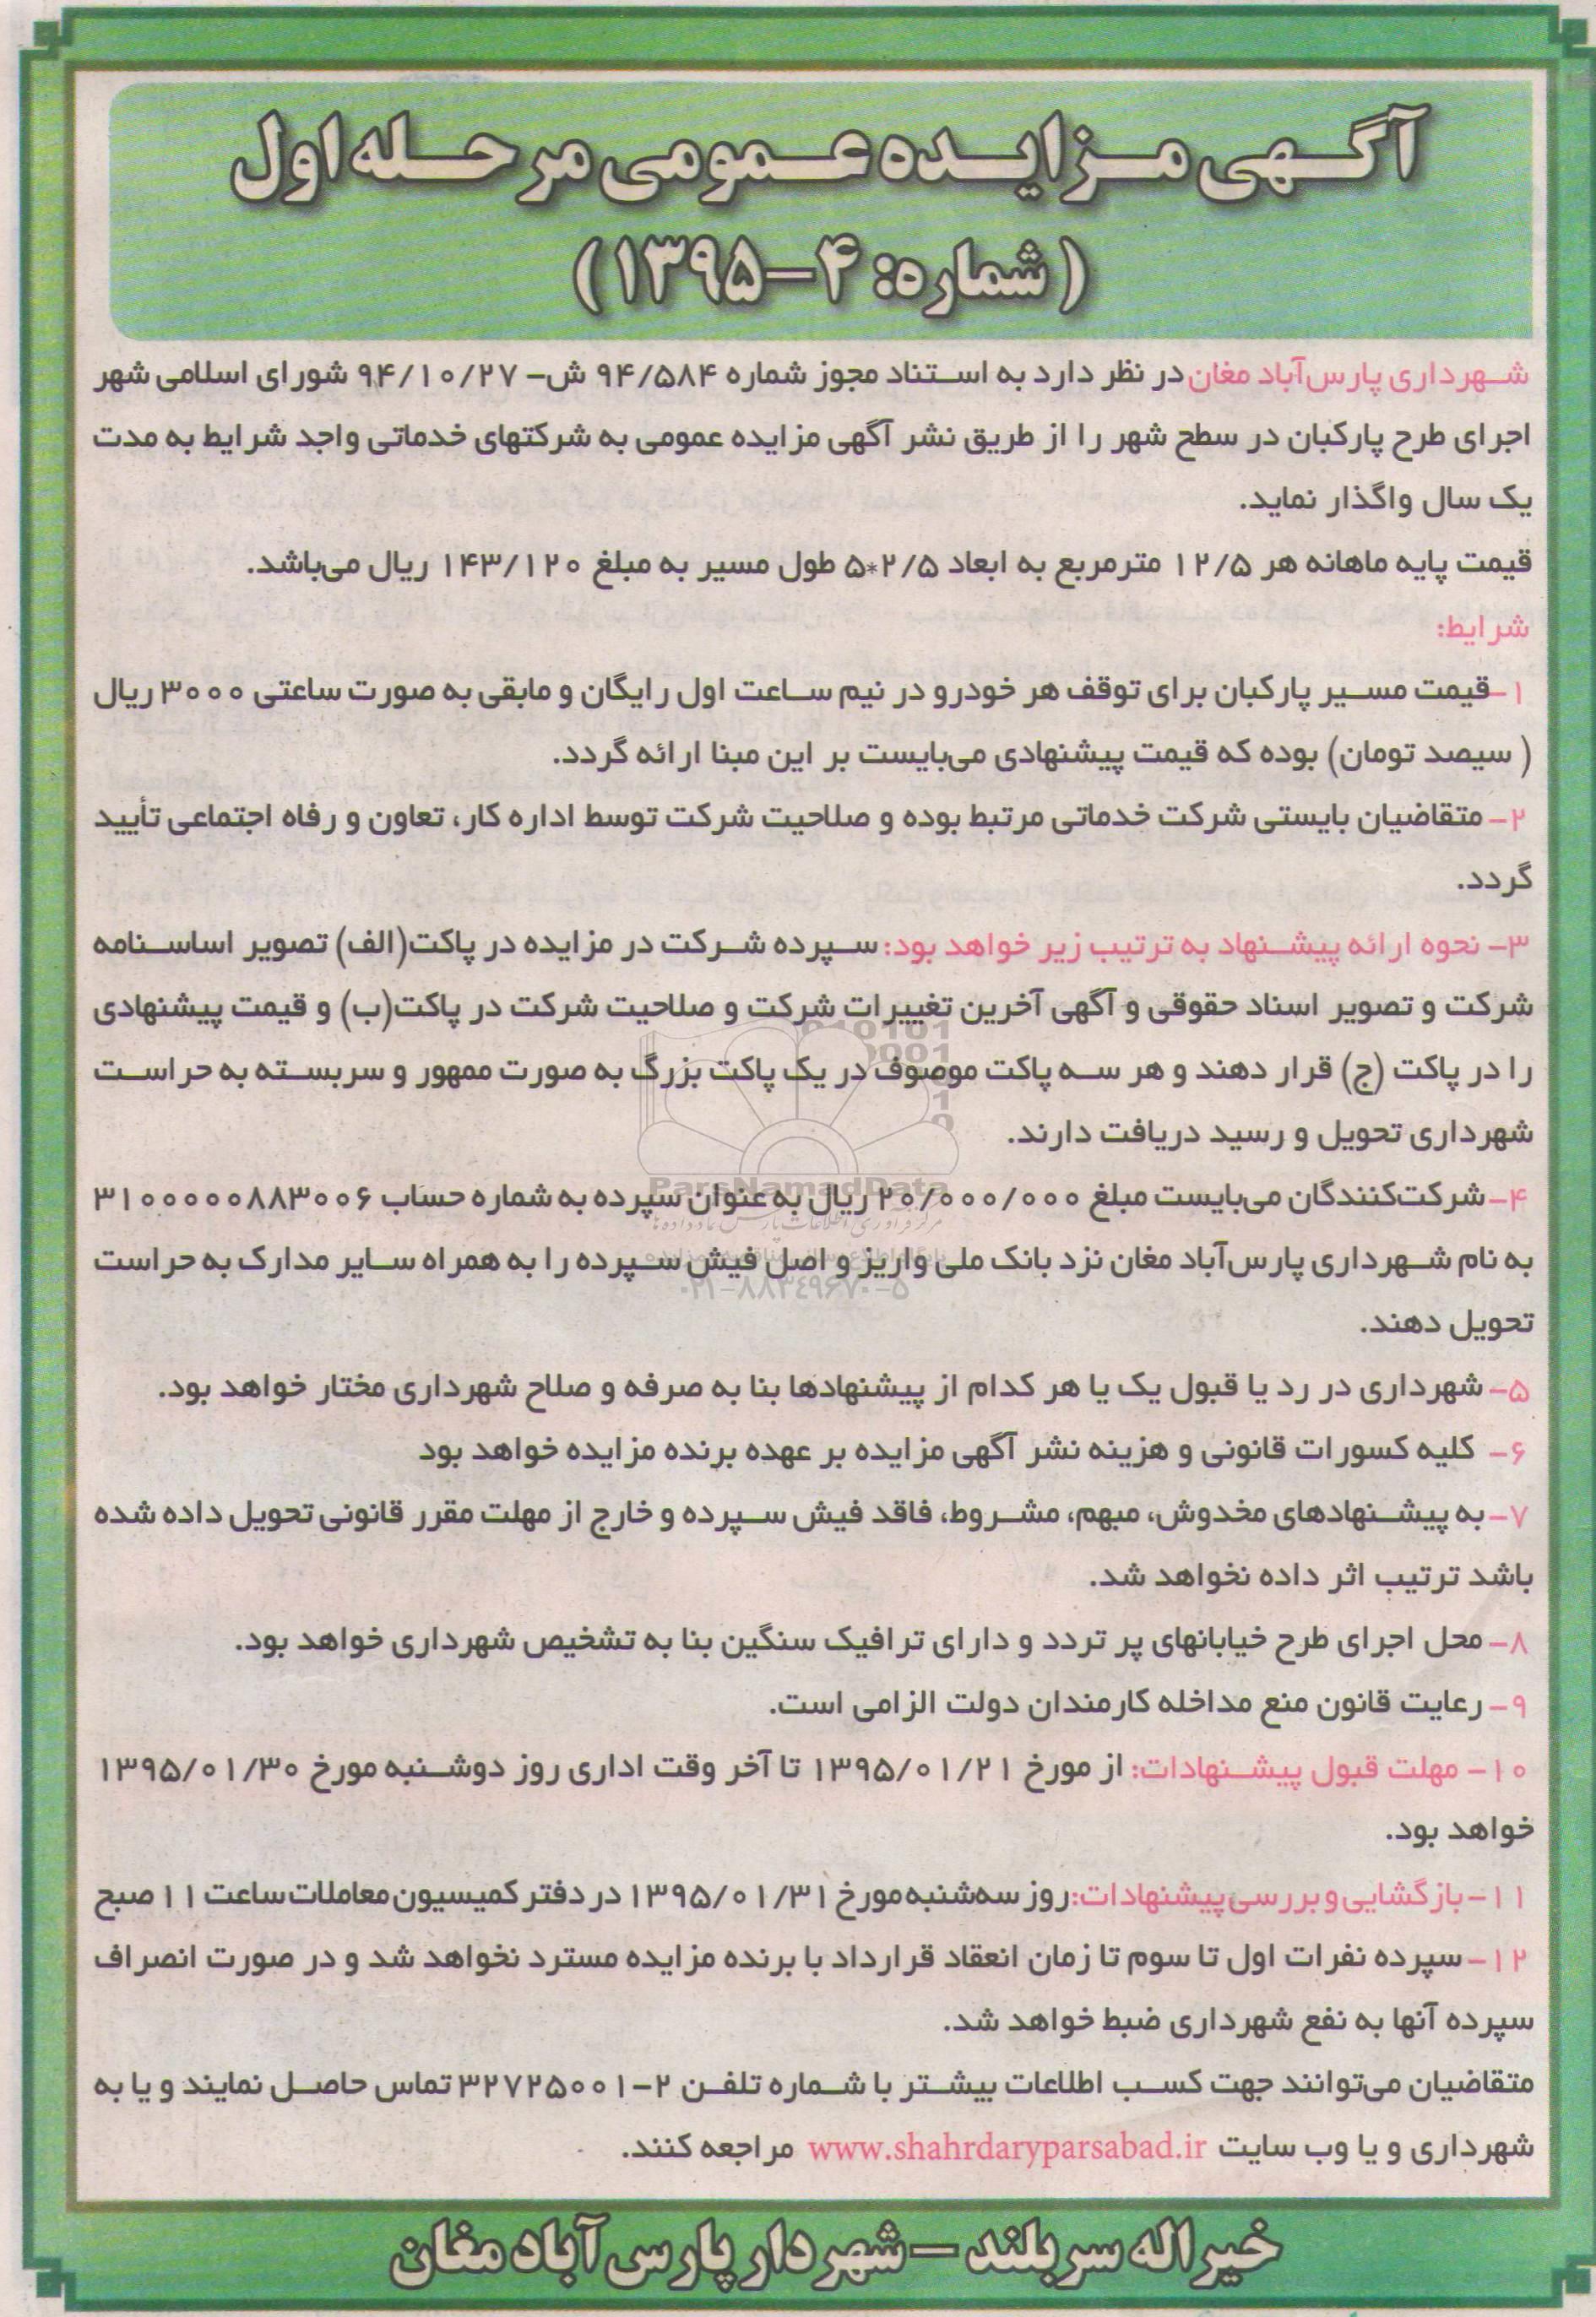 آگهی مزایده عمومی مرحله اول
(شماره: ۴-۱۳۹۵)
شهرداری پارس‌آباد مغان در نظر دارد به استناد مجوز شماره ۹۴/۵۸۴ ش- ۹۴/۱۰/۲۷ شورای اسلامی شهر
اجرای طرح پارکبان در سطح شهر را از طریق نشر آگهی مزایده عمومی به شرکتهای خدماتی واجد شرایط به مدت
یک سال واگذار نماید.
قیمت پایه ماهانه هر ۱۲/۵ مترمربع به ابعاد ۲/۵*۵ طول مسیر به مبلغ ۱۴۳/۱۲۰ ریال می‌باشد.
شرایط:
۱-قیمت مسیر پارکبان برای توقف هر خودرو در نیم ساعت اول رایگان و مابقی به صورت ساعتی ۳۰۰۰ ریال
( سیصد تومان) بوده که قیمت پیشنهادی می‌بایست بر این مبنا ارائه گردد.
۲- متقاضیان بایستی شرکت خدماتی مرتبط بوده و صلاحیت شرکت توسط اداره کار، تعاون و رفاه اجتماعی تأیید
گردد.
۳- نحوه ارائه پیشنهاد به ترتیب زیر خواهد بود: سپرده شرکت در مزایده در پاکت(الف) تصویر اساسنامه
شرکت و تصویر اسناد حقوقی و آگهی آخرین تغییرات شرکت و صلاحیت شرکت در پاکت(ب) و قیمت پیشنهادی
را در پاکت (ج) قرار دهند و هر سه پاکت موصوف در یک پاکت بزرگ به صورت ممهور و سربسته به حراست
شهرداری تحویل و رسید دریافت دارند.
ParsNamadData
۴-شرکت‌کنندگان می‌بایست مبلغ ۲۰/۰۰۰/۰۰۰ ریال به عنوان سپرده به شماره حساب ۳۱۰۰۰۰۰۸۸۳۰۰۶
به نام شهرداری پارس‌آباد مغان نزد بانک ملی واریز و اصل فیش سپرده را به همراه سایر مدارک به حراست
۰۲۱-۸۸۳۴۹۶۷۰-۵
تحویل دهند.
۵- شهرداری در رد یا قبول یک یا هر کدام از پیشنهادها بنا به صرفه و صلاح شهرداری مختار خواهد بود.
۶- کلیه کسورات قانونی و هزینه نشر آگهی مزایده بر عهده برنده مزایده خواهد بود
۷- به پیشنهادهای مخدوش، مبهم، مشروط، فاقد فیش سپرده و خارج از مهلت مقرر قانونی تحویل داده شده
باشد ترتیب اثر داده نخواهد شد.
۸- محل اجرای طرح خیابانهای پر تردد و دارای ترافیک سنگین بنا به تشخیص شهرداری خواهد بود.
۹- رعایت قانون منع مداخله کارمندان دولت الزامی است.
۱۰- مهلت قبول پیشنهادات: از مورخ ۱۳۹۵/۰۱/۲۱ تا آخر وقت اداری روز دوشنبه مورخ ۱۳۹۵/۰۱/۳۰
خواهد بود.
۱۱-بازگشایی و بررسی پیشنهادات:روز سه‌شنبه مورخ ۱۳۹۵/۰۱/۳۱ در دفتر کمیسیون معاملات ساعت ۱۱ صبح
۱۲- سپرده نفرات اول تا سوم تا زمان انعقاد قرارداد با برنده مزایده مسترد نخواهد شد و در صورت انصراف
سپرده آنها به نفع شهرداری ضبط خواهد شد.
متقاضیان می‌توانند جهت کسب اطلاعات بیشتر با شماره تلفن ۲-۳۲۷۲۵۰۰۱ تماس حاصل نمایند و یا به
شهرداری و یا وب سایت www.shahrdaryparsabad.ir مراجعه کنند.
خیراله سربلند - شهردار پارس آباد مغان